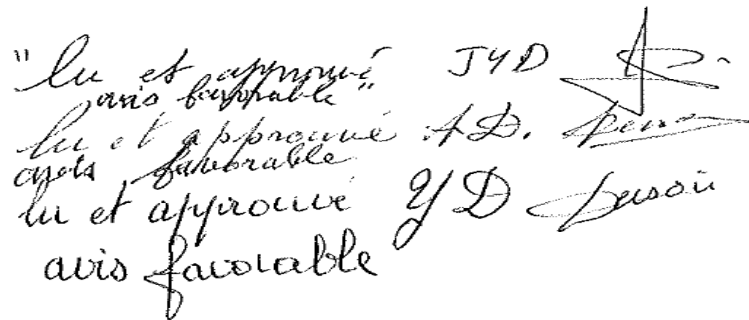 "lu et approuvé JYD
avis favorable"
lu et approuvé AD.
avis favorable
lu et approuvé YD
avis favorable